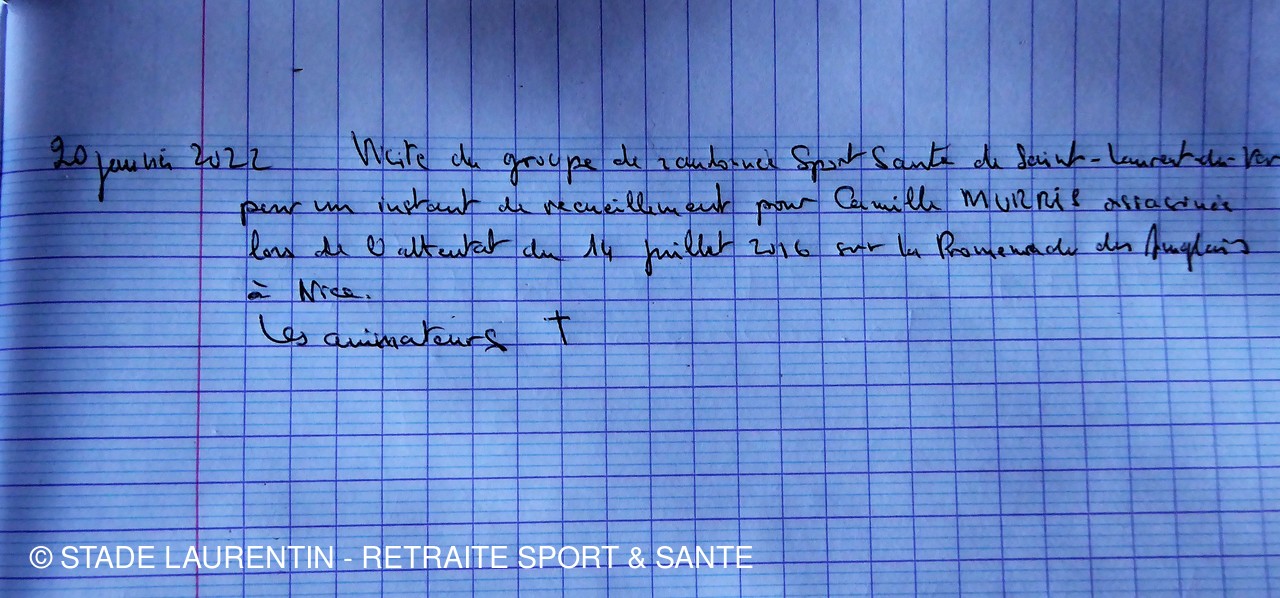 20 janvier 2022 Visite du groupe de randonnée Sport Santé de Saint-Laurent-du-Var
pour un instant de recueillement pour Camille MURRIS assassinée
lors de l'attentat du 14 juillet 2016 sur la Promenade des Anglais
à Nice.
Les animateurs †
© STADE LAURENTIN - RETRAITE SPORT & SANTE